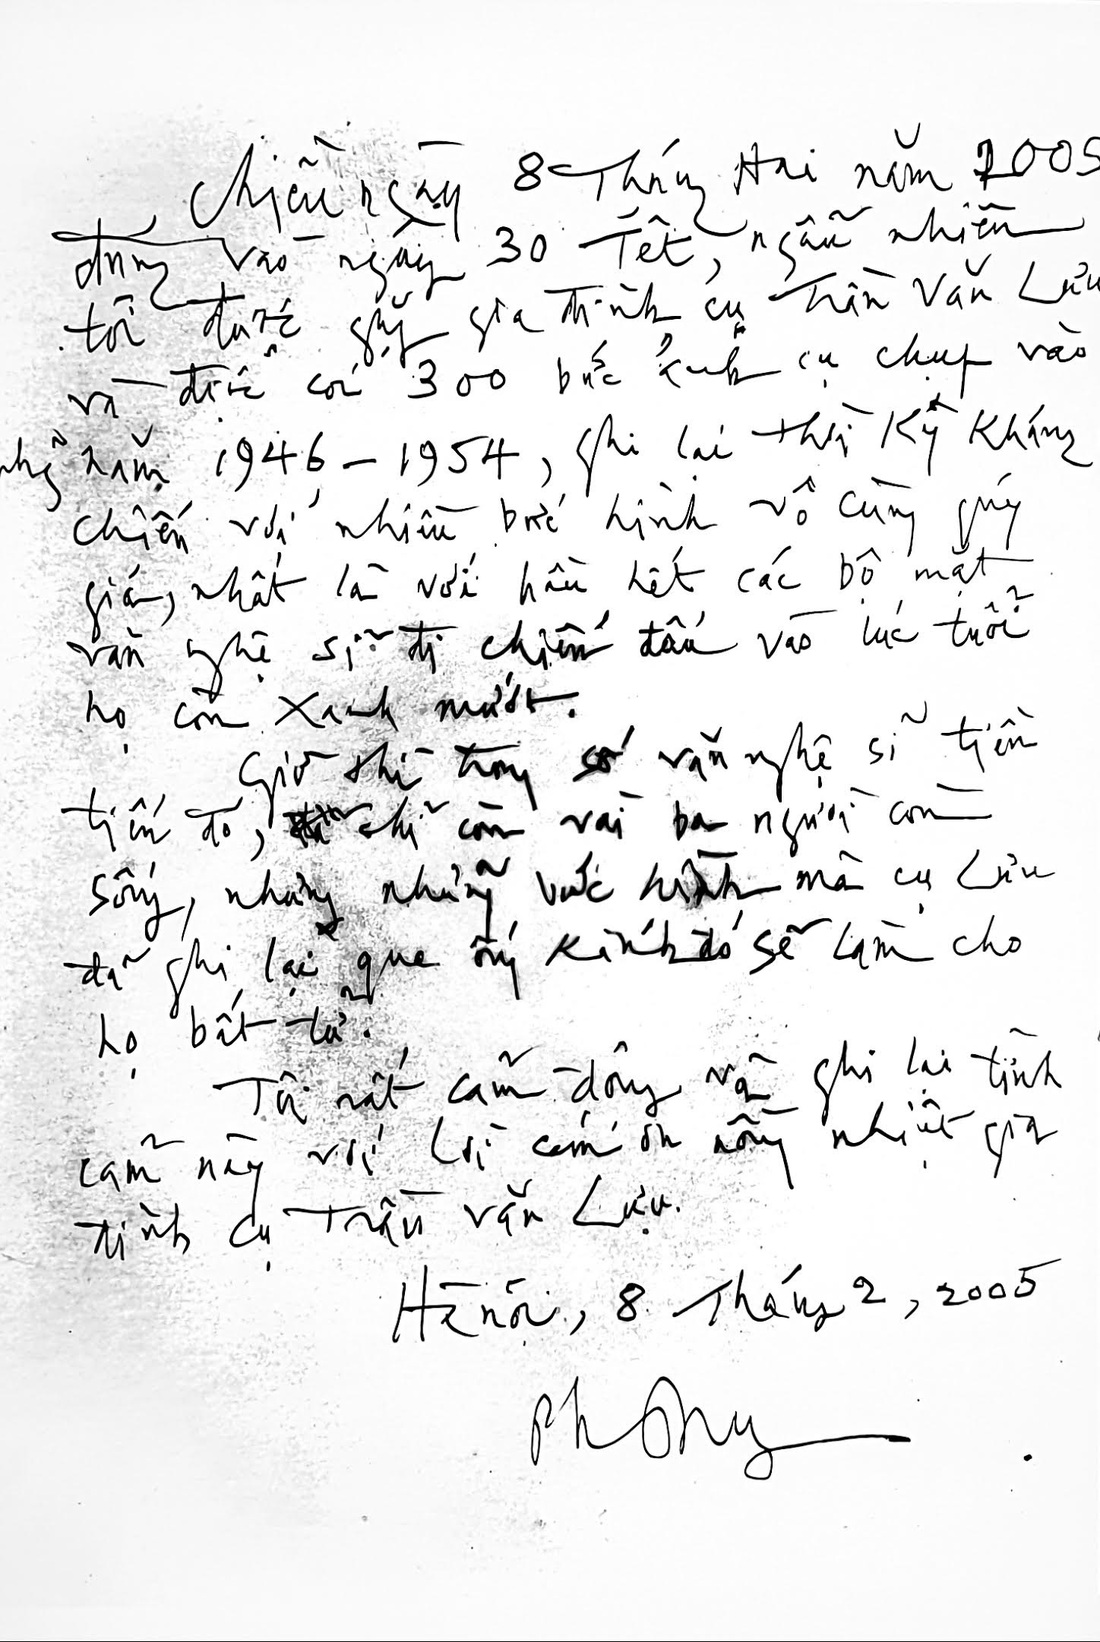 Chiều ngày 8 Tháng Hai năm 2005
đúng vào ngày 30 Tết, ngẫu nhiên
tôi được gặp gia đình cụ Trần Văn Lưu
và được coi 300 bức ảnh cụ chụp vào
những năm 1946 - 1954, ghi lại thời Kỳ Kháng
chiến với nhiều bức hình vô cùng quý
giá, nhất là với hầu hết các bộ mặt
văn nghệ sĩ đi chiến đấu vào lúc tuổi
họ còn xanh mướt.
Giờ thì trong số văn nghệ sĩ tiền
tiến đó, chỉ còn vài ba người còn
sống, nhưng những bức hình mà cụ Lưu
đã ghi lại qua ống kính đó sẽ làm cho
họ bất tử.
Tôi rất cảm động và ghi lại tình
cảm này với lời cám ơn nồng nhiệt gia
đình cụ Trần Văn Lưu.
Hà nội, 8 Tháng 2, 2005